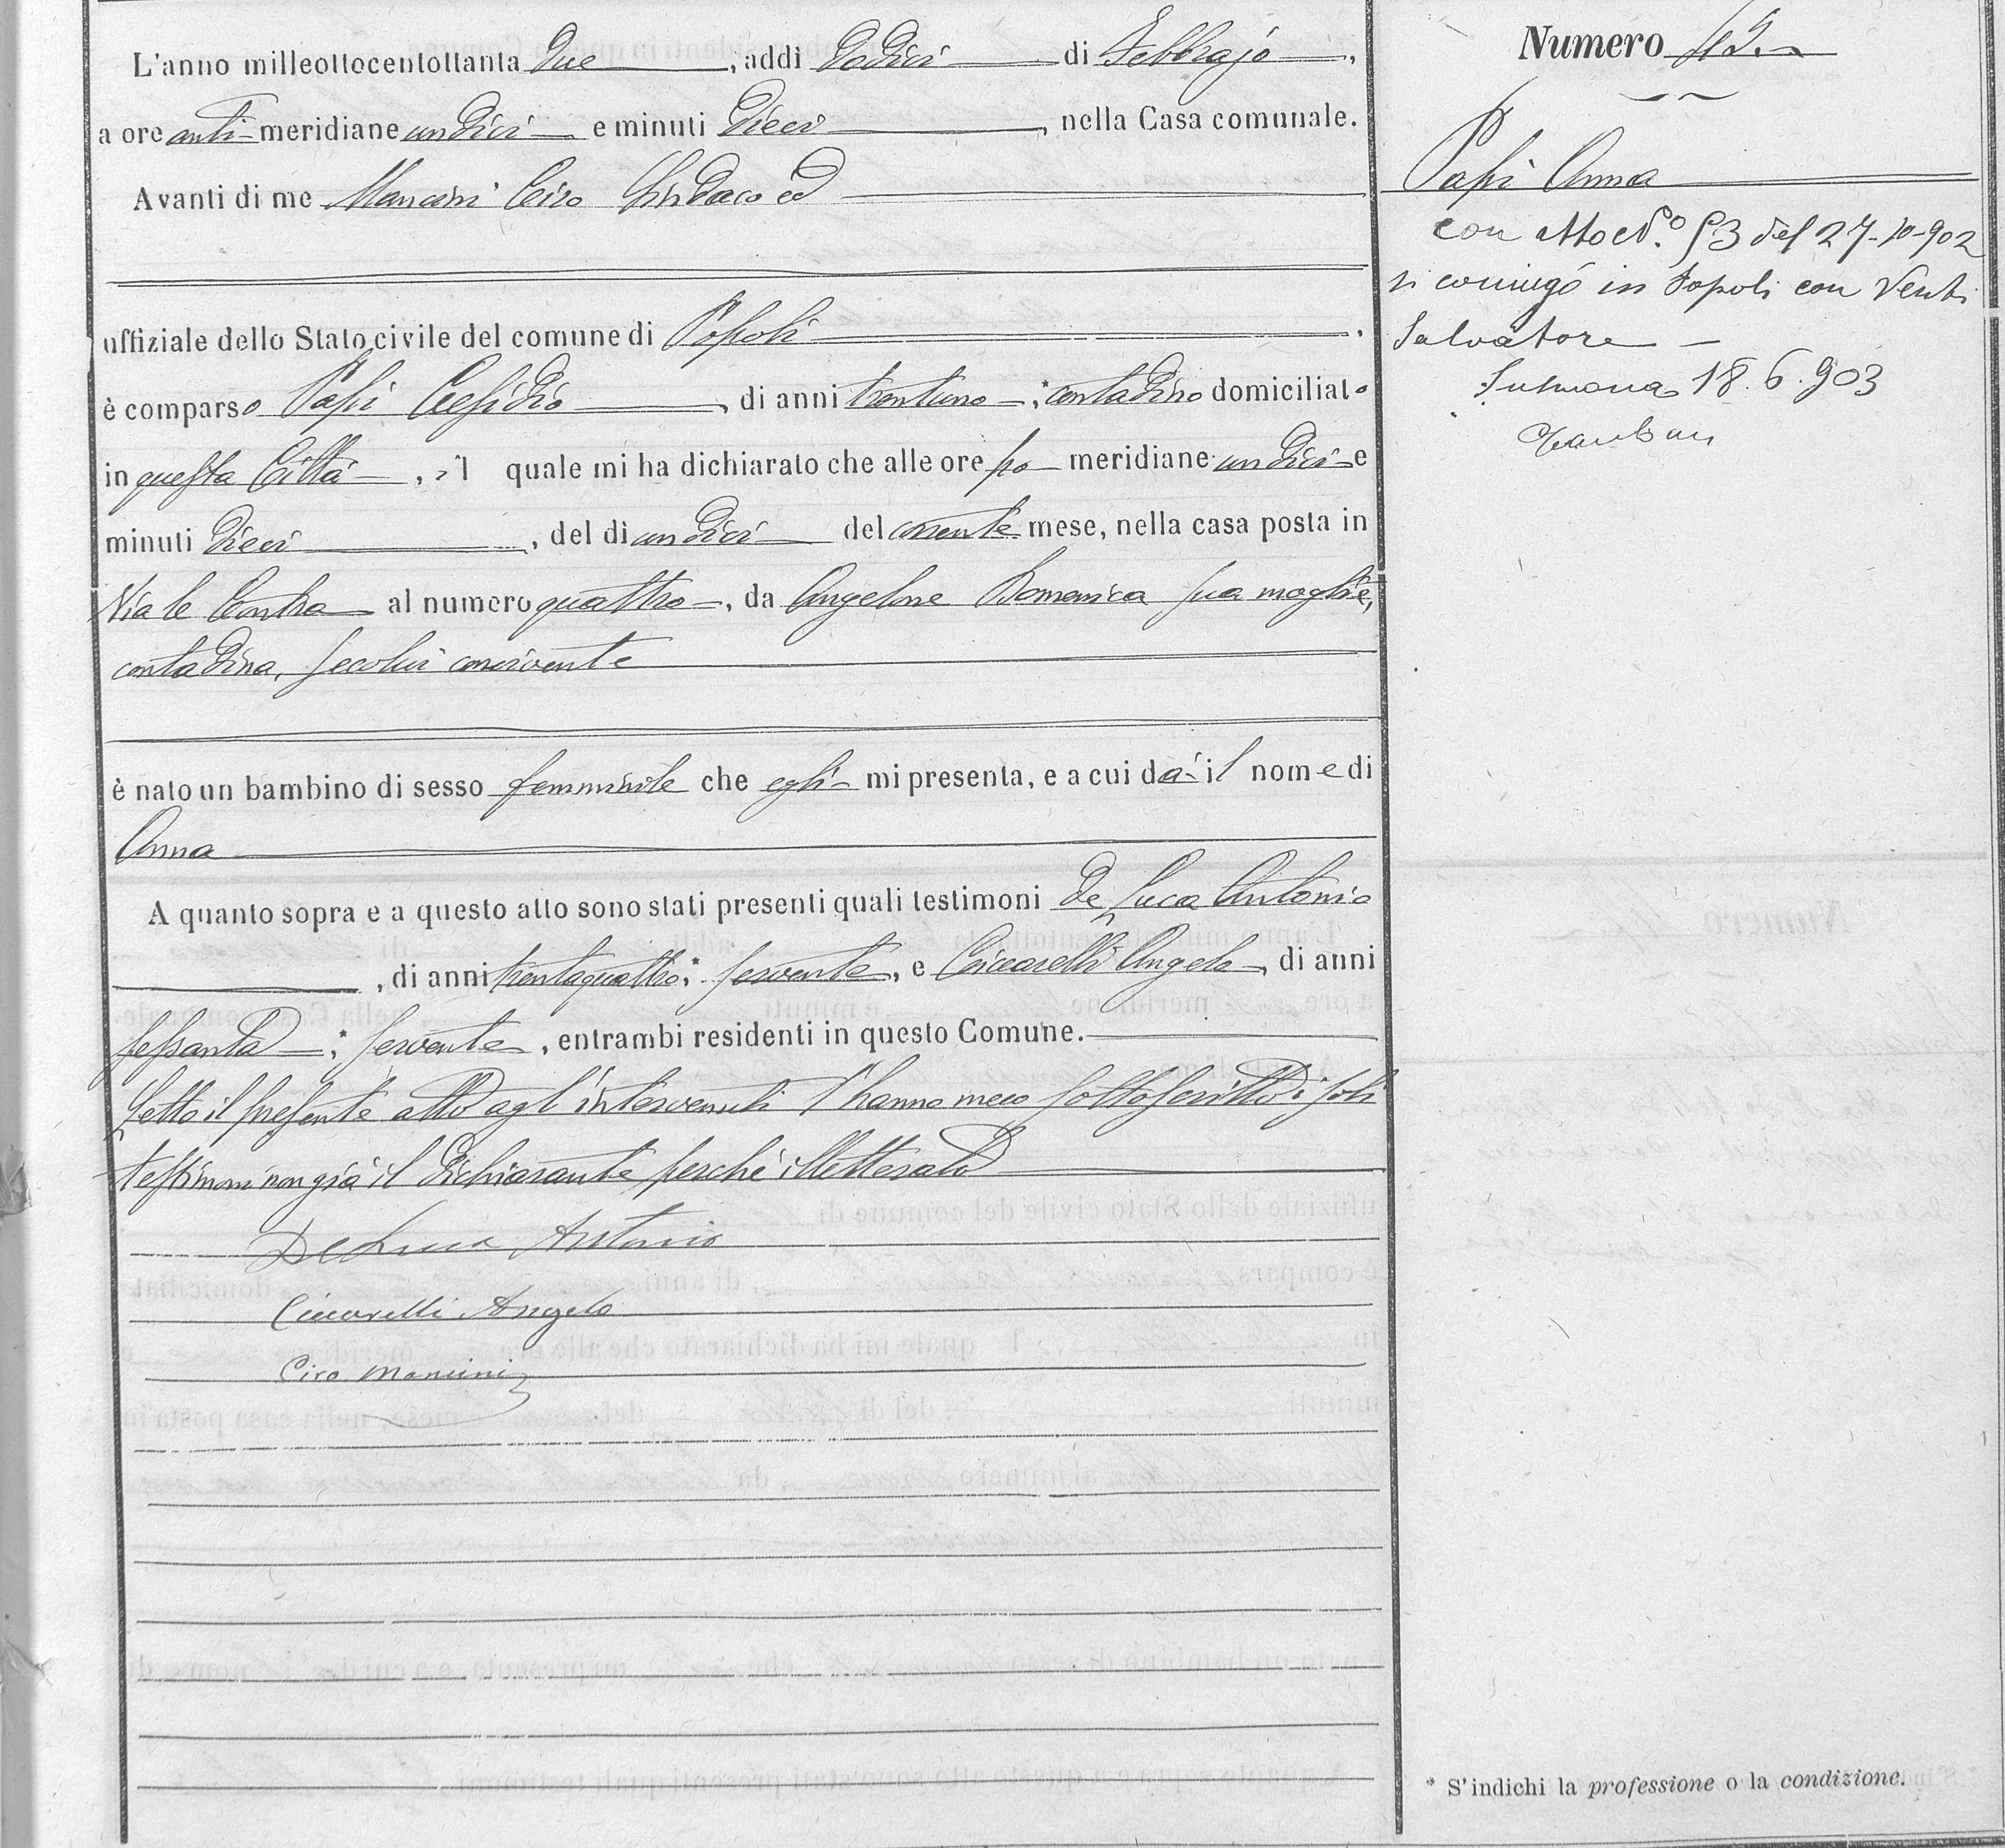 L'anno milleottocentottanta due, addì dodici di Febbrajo,
a ore anti meridiane undici e minuti dieci, nella Casa comunale.
Avanti di me Mancini Ciro Sindaco ed
uffiziale dello Stato civile del comune di Popoli.
è comparso Papi Cesidio, di anni trentuno, * contadino domiciliato
in questa Città, il quale mi ha dichiarato che alle ore po meridiane undici e
minuti dieci, del dì undici del corrente mese, nella casa posta in
Via le Contra al numero quattro, da Angelone Domenica sua moglie,
contadina, secolui convivente
è nato un bambino di sesso femminile che egli mi presenta, e a cui dà il nome di
Anna
A quanto sopra e a questo atto sono stati presenti quali testimoni De Luca Antonio
, di anni trentaquattro, * servente, e Ciccarelli Angelo, di anni
sessanta, * servente, entrambi residenti in questo Comune.
Letto il presente atto agl'intervenuti l'hanno meco sottoscritto i soli
testimoni non già il dichiarante perché illetterato
De Luca Antonio
Ciccarelli Angelo
Ciro Mancini
Numero
Papi Anna
con atto N.º 53 del 27-10-902
si coniugò in Popoli con Venti
Salvatore
Sulmona 18.6.903
* S'indichi la professione o la condizione.